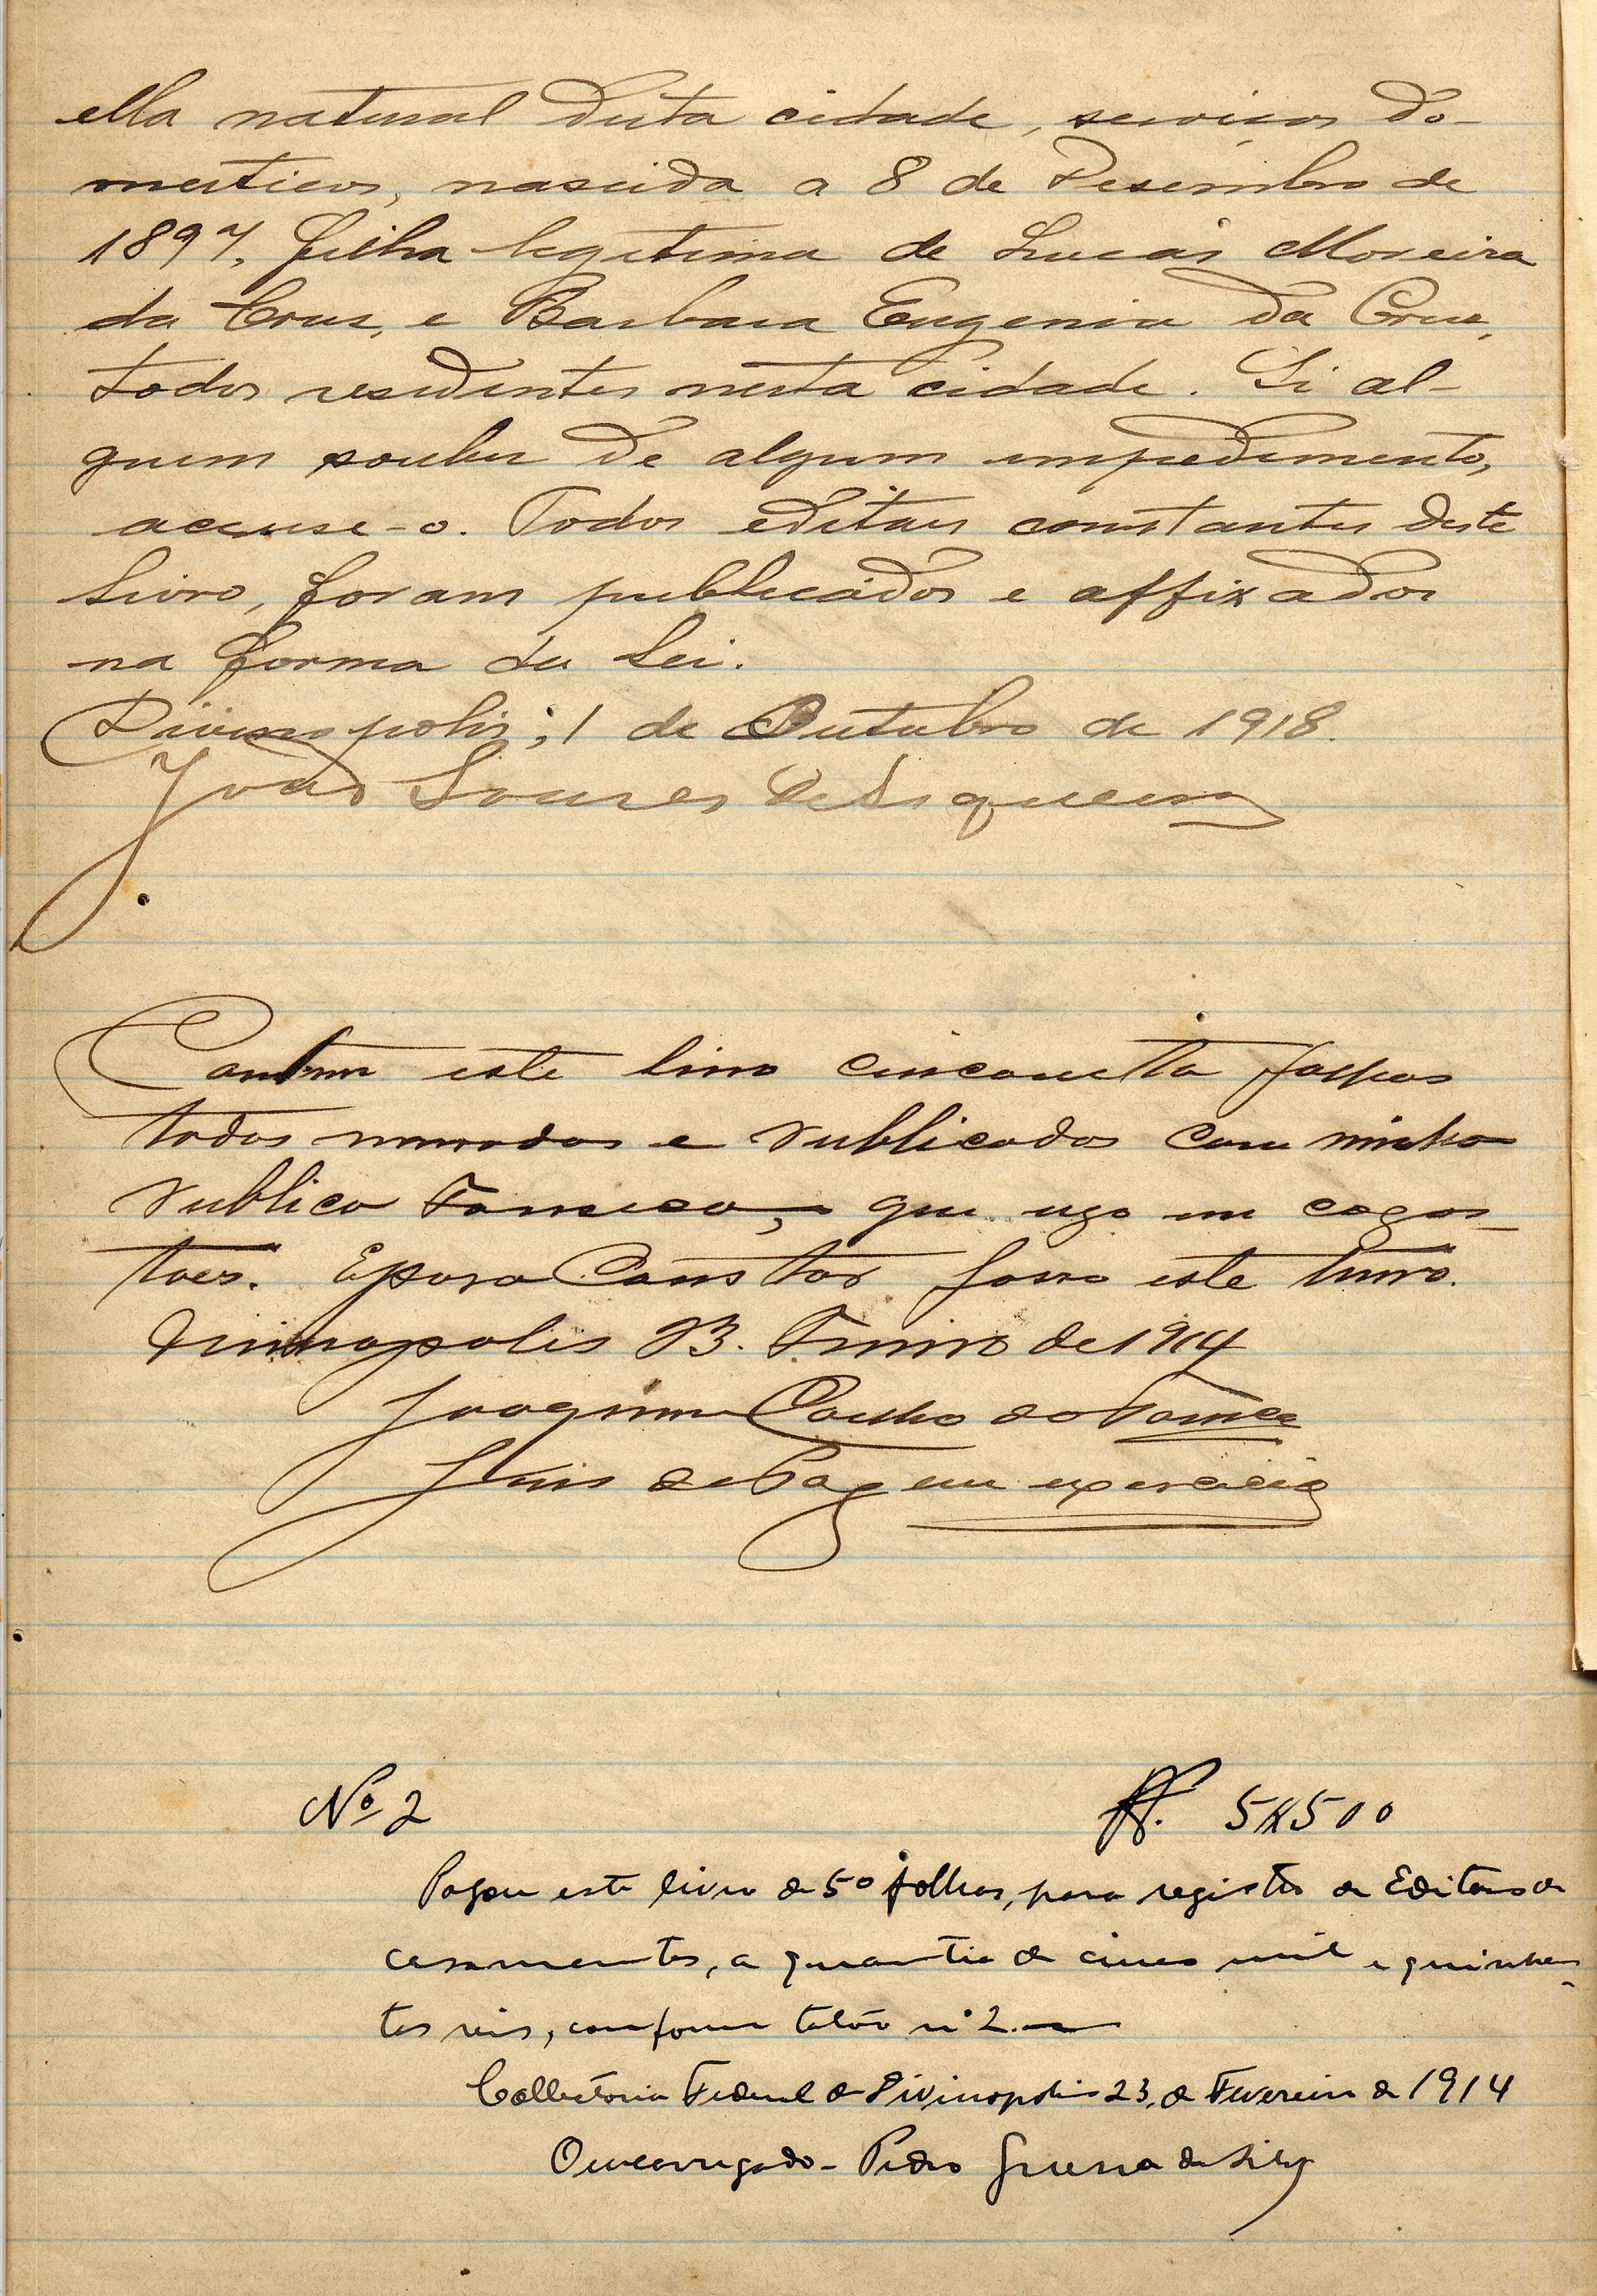 ella natural desta cidade, serviços do-
mesticos, nascida a 8 de Desembro de
1897, filha legitima de Lucas Moreira
da Crus, e Barbara Eugenia da Crus,
todos residentes nesta cidade. Si al-
guem souber de algum impedimento,
accuse-o. Todos editaes constantes deste
Livro, foram publicados e affixados
na forma da Lei.
Divinopolis, 1 de Outubro de 1918.
João Soares de Siqueira
Contem este livro cincoenta folhas
todas numeradas e rublicadas com minha
rublica Fonseca, que uzo em
E para Constar faço este termo.
Divinopolis 23. de 1914
Joaquim Coelho da Fonseca
Juis de Paz em exercicio
Nº 2
R. 5$500
Pagou este livro de 50 folhas, para registro de Editaes de
casamentos, a quantia de cinco mil e quinhen-
tos reis, conforme talão nº 2.
Collectoria Federal de Divinopolis 23, de Fevereiro de 1914
O encarregado - Pedro Guerra da Silva